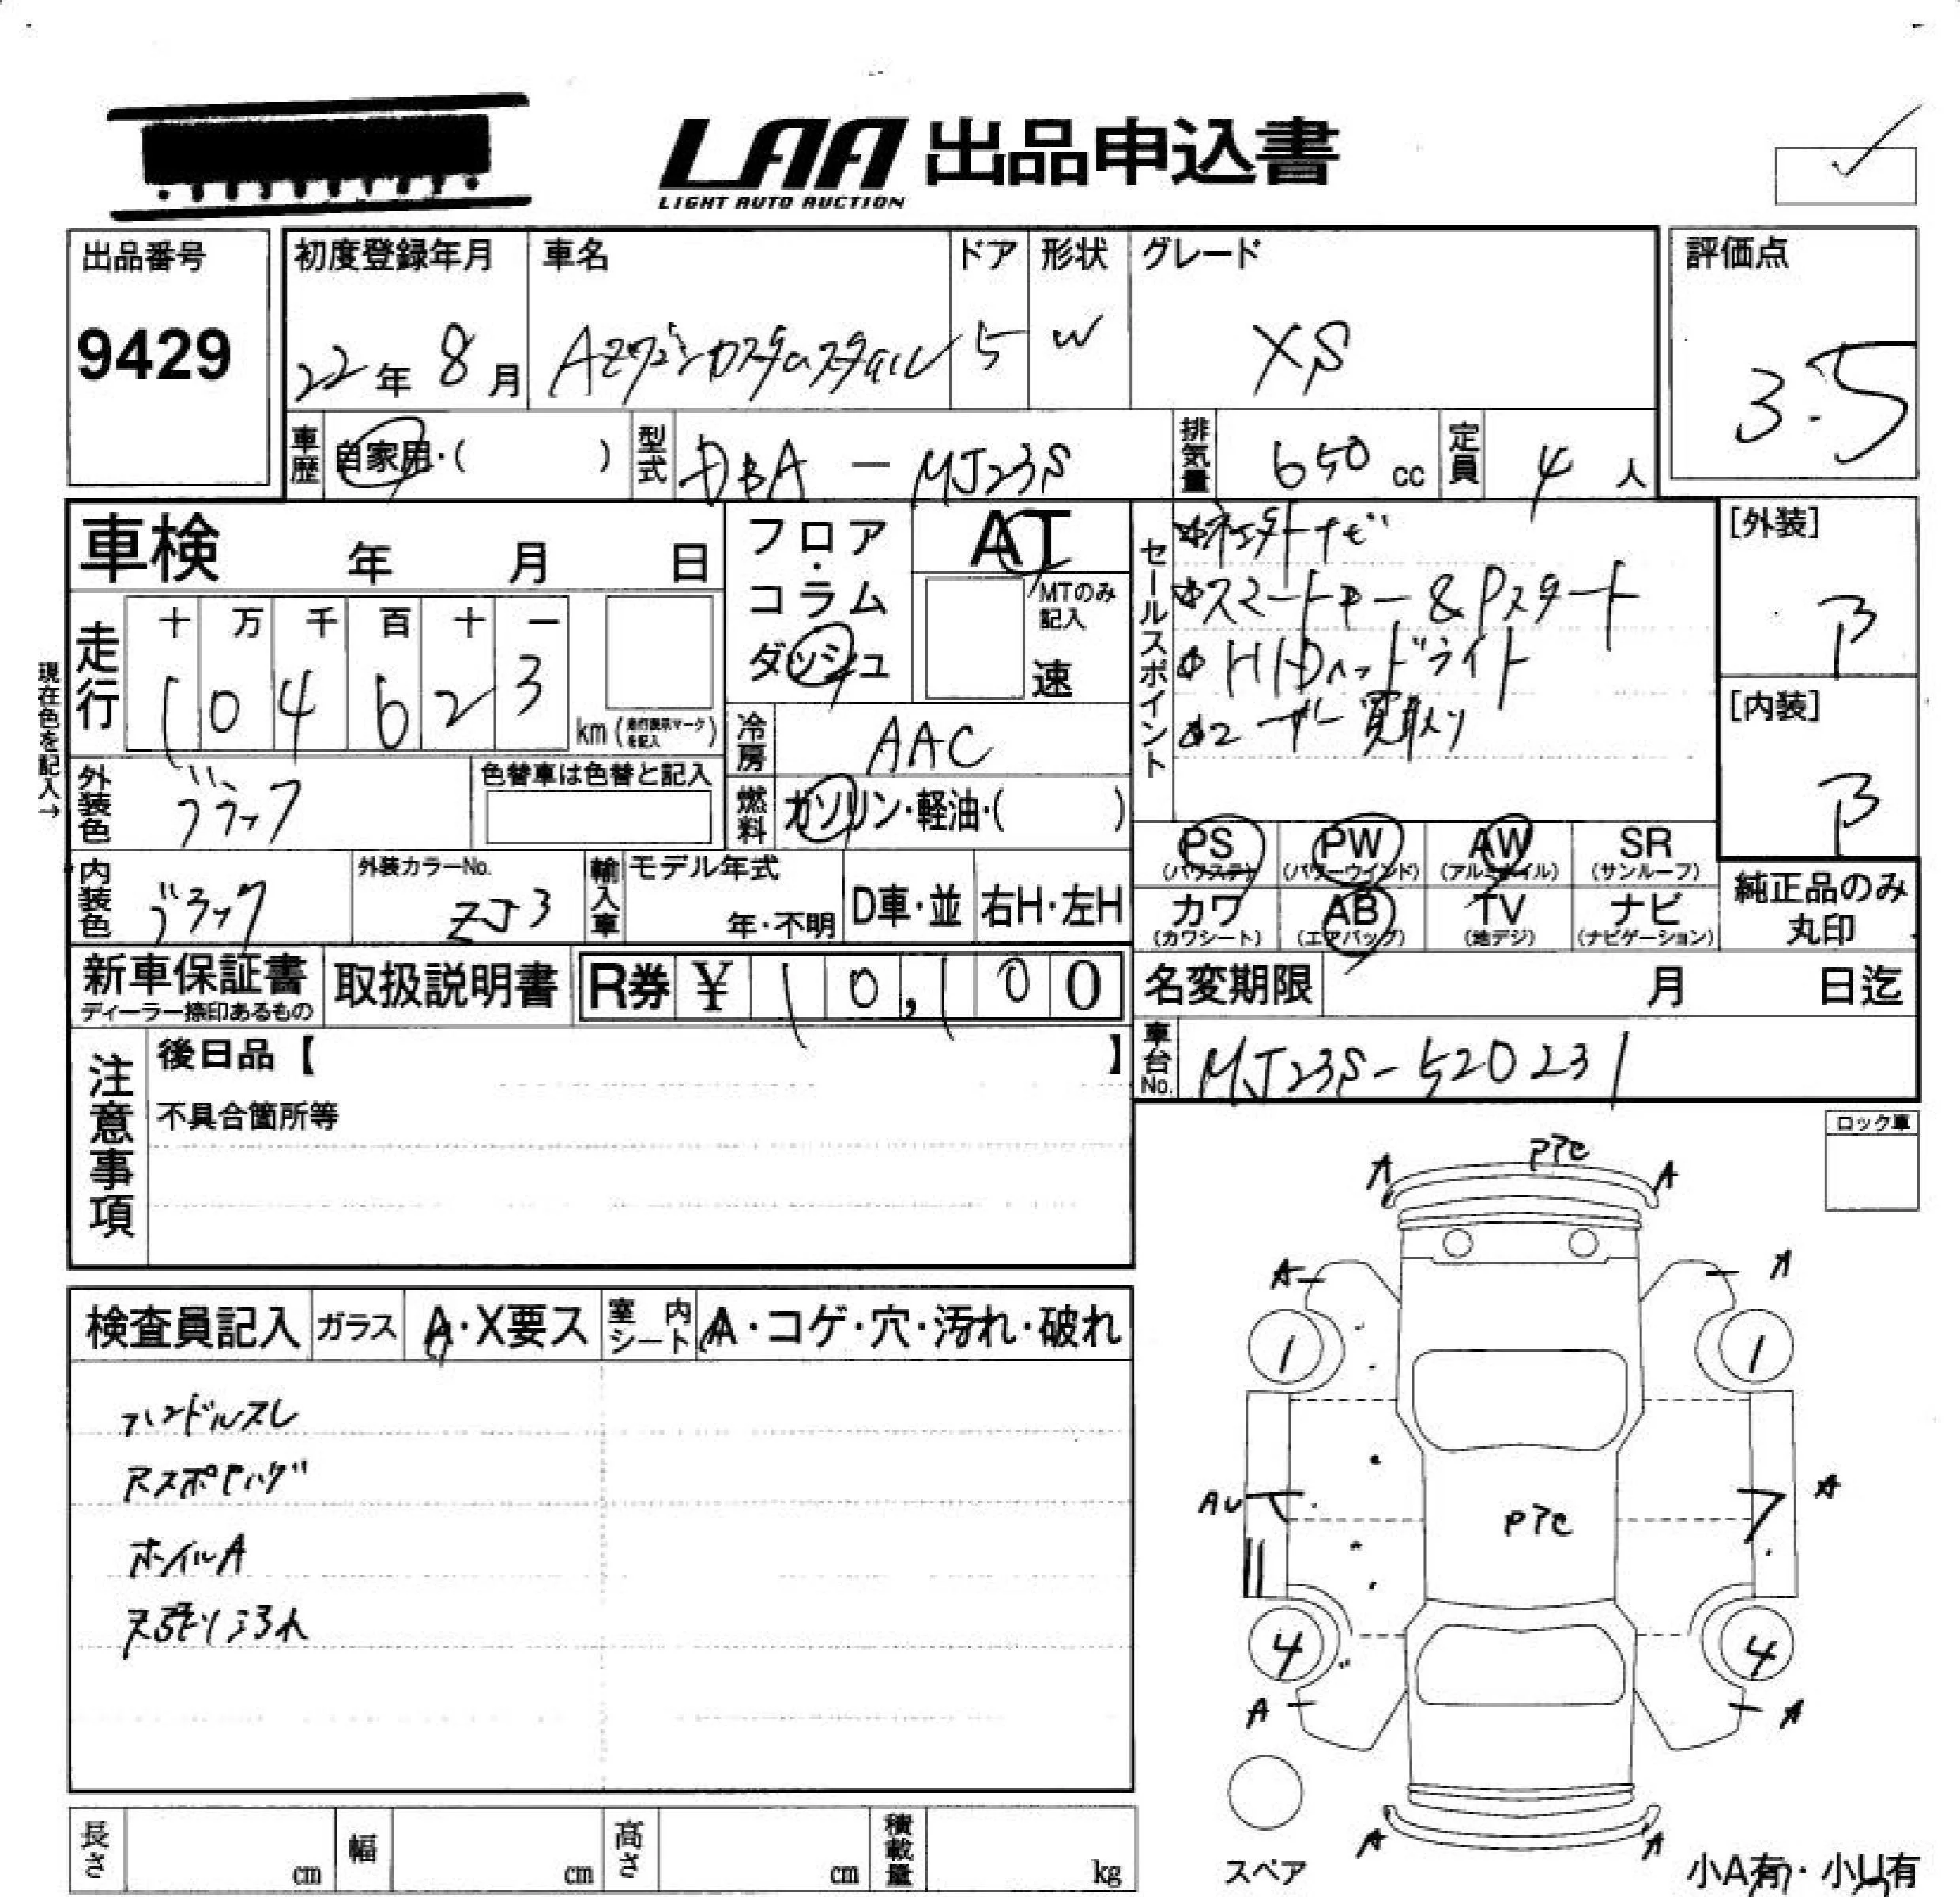 LAA 出品申込書
LIGHT AUTO AUCTION
出品番号
9429
初度登録年月
22年 8月
車名
AZワゴンカスタムスタイル
ドア
5
形状
W
グレード
XS
評価点
3.5
車歴
自家用・( )
型式
DBA - MJ23S
排気量
650 cc
定員
4 人
車検 年 月 日
フロア・コラム
ダッシュ
AT
MTのみ記入
速
セールスポイント
スマートキー & Pスタート
HIDヘッドライト
ユーザー買取り
[外装]
B
[内装]
B
現在色を記入→
走行
十 万 千 百 十 一
1 0 4 6 2 3
km (走行表示マークを記入)
冷房
AAC
外装色
ブラック
色替車は色替と記入
燃料
ガソリン・軽油・( )
PS
(パワステ)
PW
(パワーウインド)
AW
(アルミホイル)
SR
(サンルーフ)
カワ
(カワシート)
AB
(エアバッグ)
TV
(地デジ)
ナビ
(ナビゲーション)
純正品のみ
丸印
内装色
ブラック
外装カラーNo.
ZJ3
輸入車
モデル年式
年・不明
D車・並
右H・左H
新車保証書
ディーラー捺印あるもの
取扱説明書
R券 ¥ 10,100
名変期限 月 日迄
車台No.
MJ23S-520231
注意事項
後日品【 】
不具合箇所等
ロック車
検査員記入
ガラス
A・X要ス
室内シート
A・コゲ・穴・汚れ・破れ
ハンドルスレ
ホイルA
PTC
A A
A A
1 1
AU A
PTC
4 4
A A
A A
スペア
小A有・小U有
長さ cm
幅 cm
高さ cm
積載量 kg